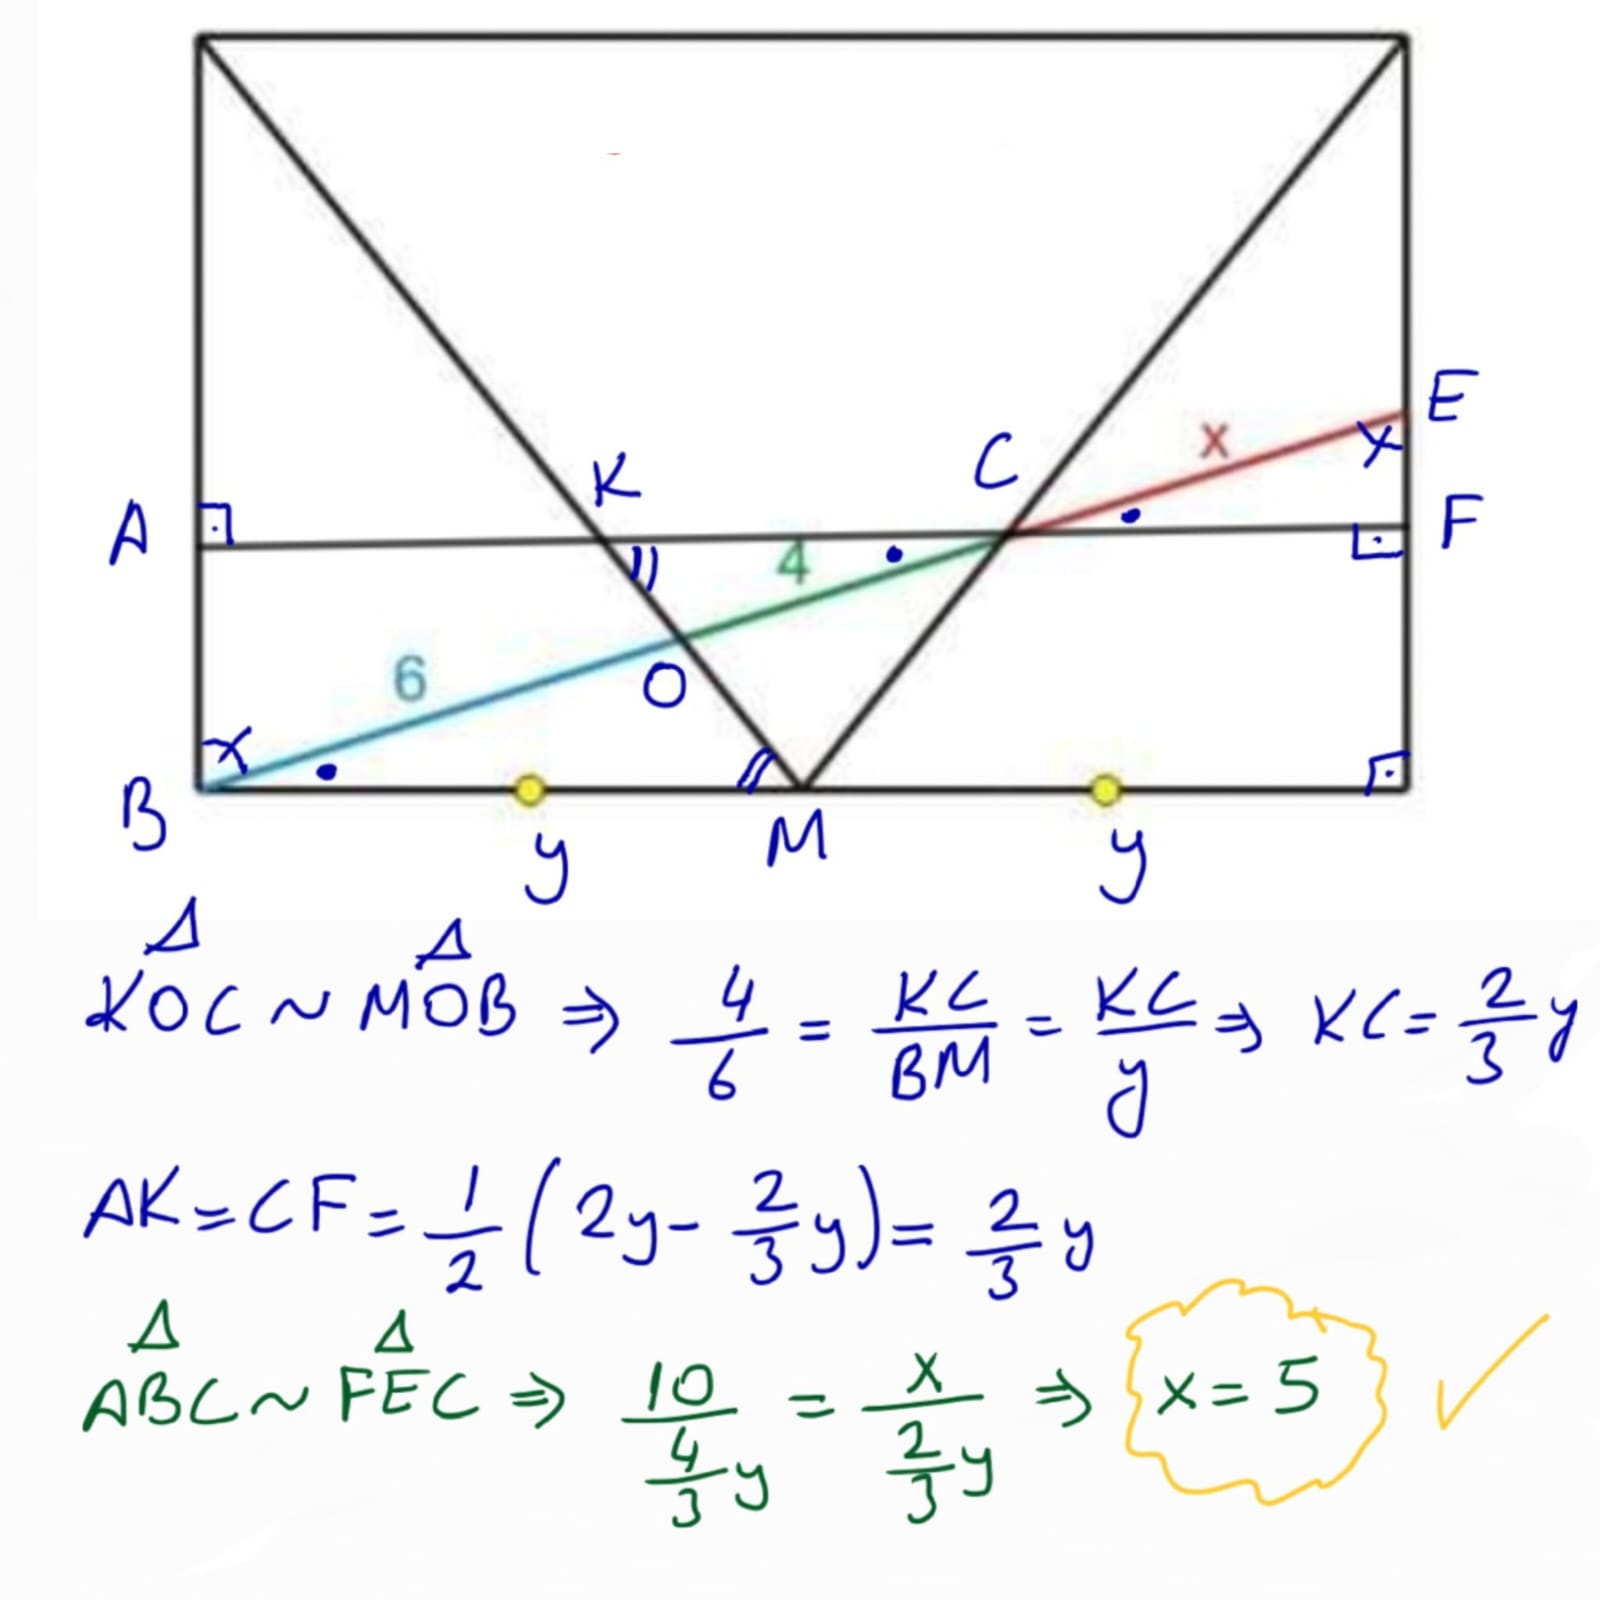 K
C
x
E
x
A
F
4
6
O
B
M
y
y
△KOC ~ △MOB ⇒ 4/6 = KC/BM = KC/y ⇒ KC = 2/3 y
AK = CF = 1/2 (2y - 2/3 y) = 2/3 y
△ABC ~ △FEC ⇒ 10/(4/3 y) = x/(2/3 y) ⇒ x = 5 ✓